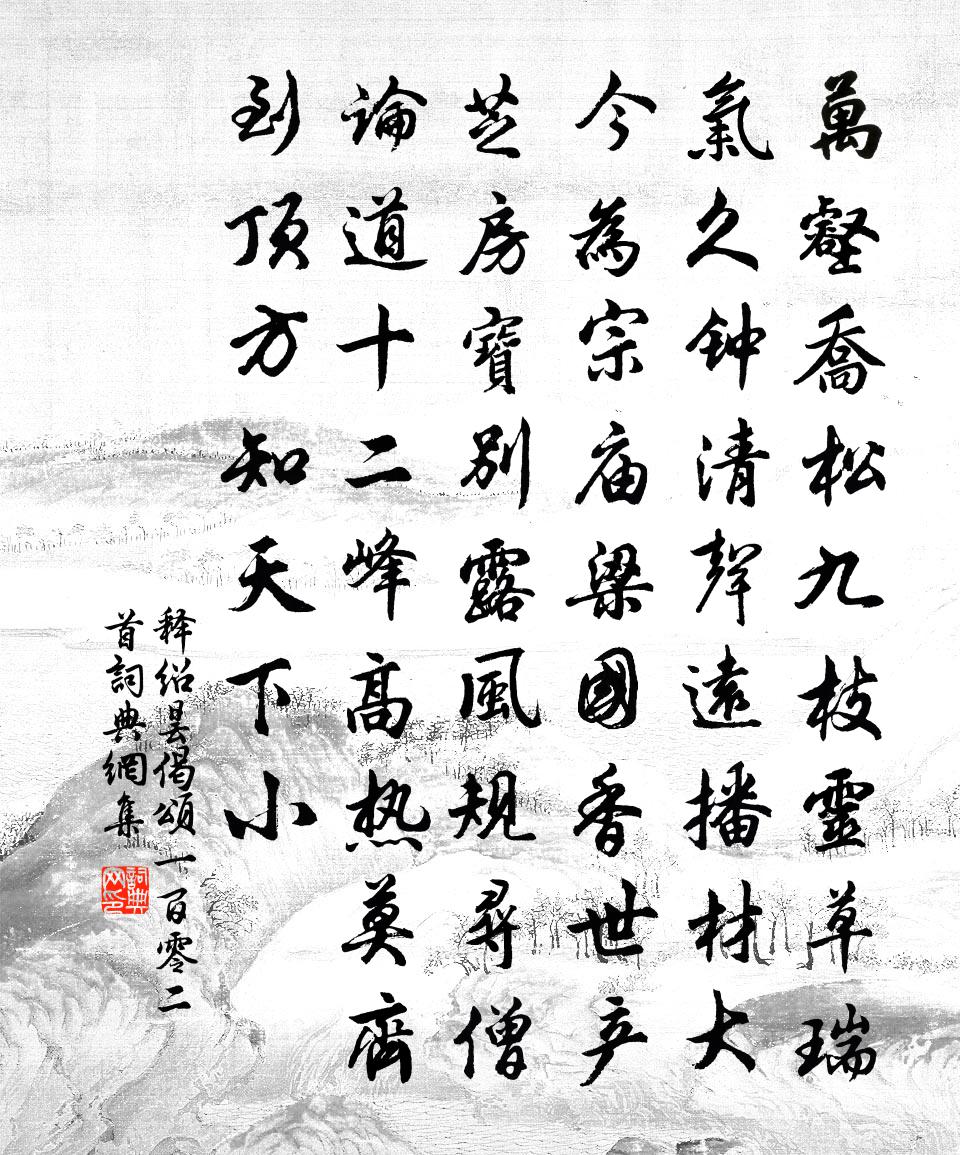 萬壑喬松九枝靈草瑞
氣久钟清聲遠播材大
今為宗庙梁國香世产
芝房寶別露風規尋僧
論道十二峰高热莫齊
到頂方知天下小
释绍昙偈頌一百零二
首詞典網集
詞典网印